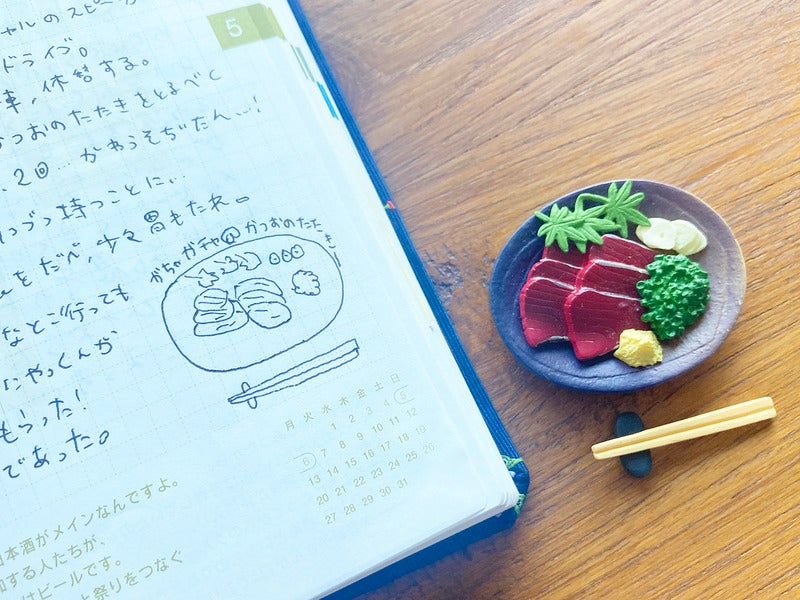 ャルのスピー
5
ドライブ。
車、休符する。
つおのたたきをとるべく
、2回…かわうそぢたん…!
つづつ持つことに…
をたべ、少々胃もたれ。
などこ行っても
にやっくんが
もらった!
であった。
がちゃガチャ@かつおのたたき
月 火 水 木 金 土 日
1 2 3 4 5
6 7 8 9 10 11 12
13 14 15 16 17 18 19
20 21 22 23 24 25 26
27 28 29 30 31
日本酒がメインなんですよ。
加する人たちが、
はビールです。
と祭りをつなぐ